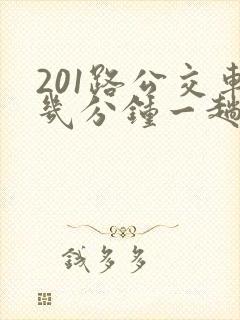 201路公交車
幾分鐘一趟
錢多多